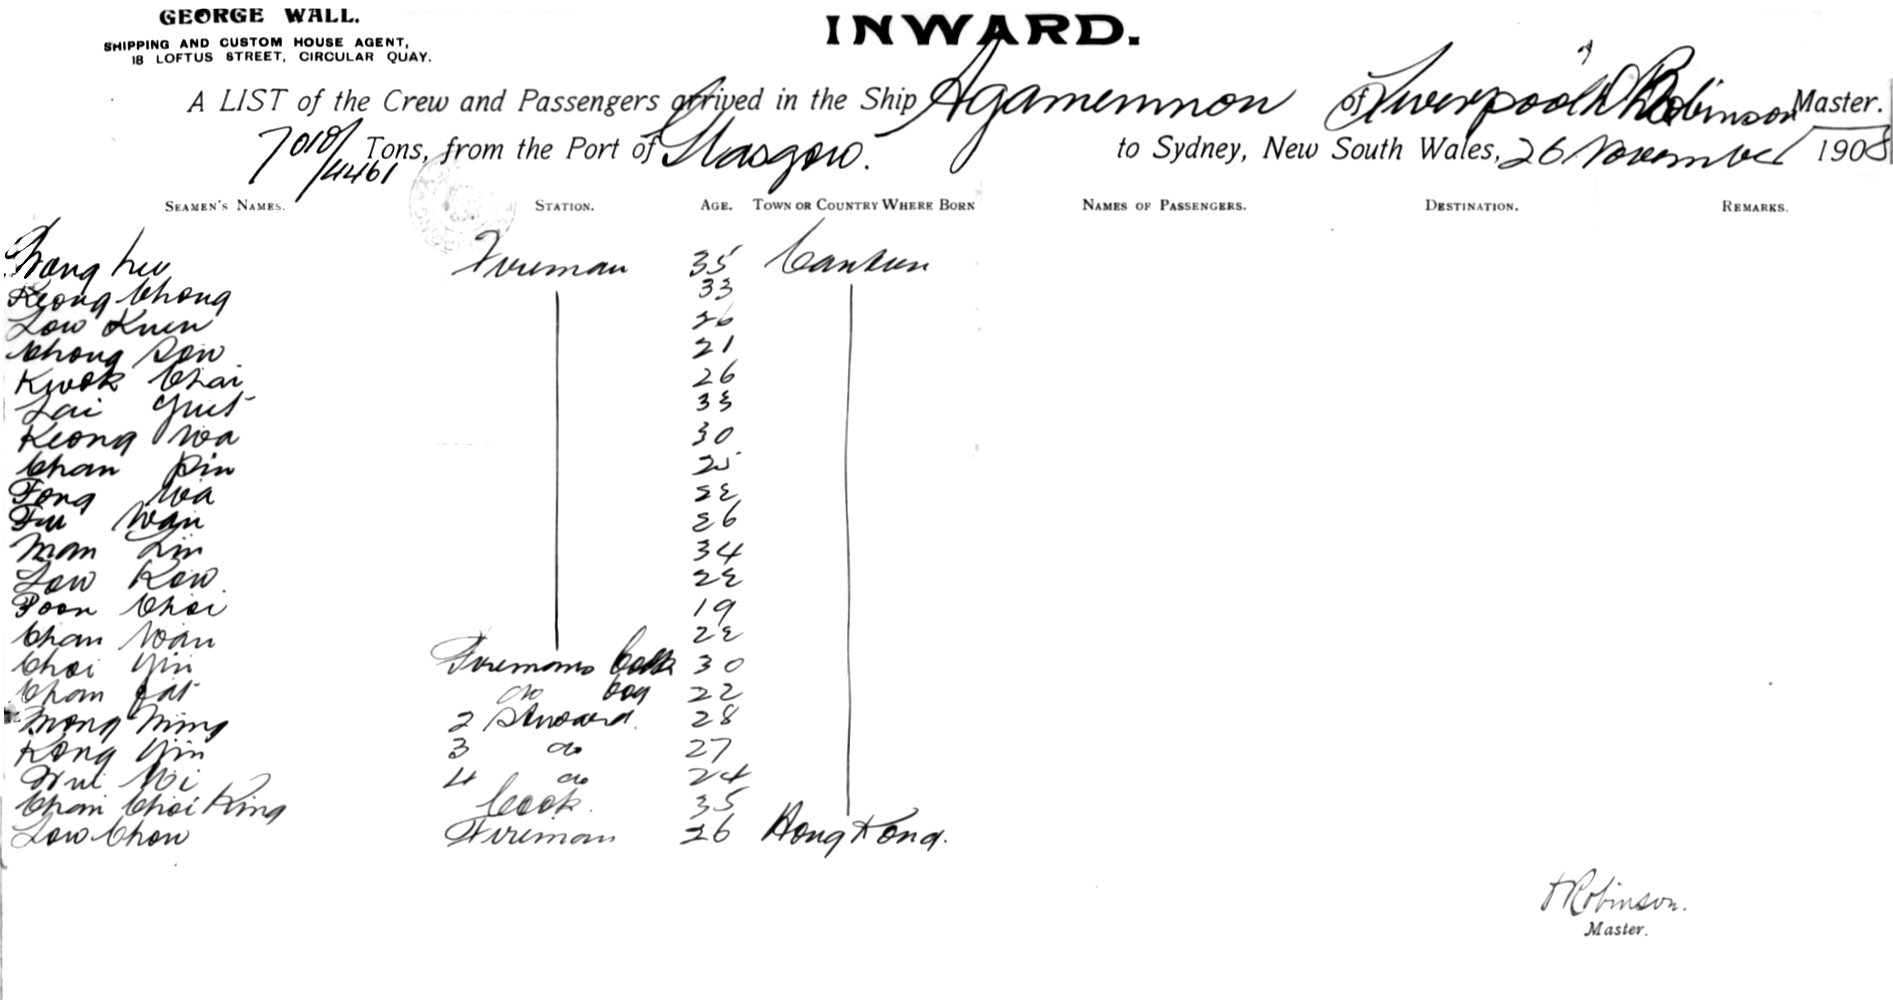 GEORGE WALL.
SHIPPING AND CUSTOM HOUSE AGENT,
18 LOFTUS STREET, CIRCULAR QUAY.
INWARD.
A LIST of the Crew and Passengers arrived in the Ship Agamemnon of Liverpool Robinson Master.
7010/4461 Tons, from the Port of Glasgow. to Sydney, New South Wales, 26 November 1908
SEAMEN'S NAMES. STATION. AGE. TOWN OR COUNTRY WHERE BORN NAMES OF PASSENGERS. DESTINATION. REMARKS.
Fireman 35 Canton
Keong Chong 33
Low Kuen 26
Chong Sow 21
Kwok Chai 26
Lai Yuet 33
Keong Wa 30
Chan Pin 25
Fong Wa 22
Fu Wan 26
Man Lin 34
Low Kow 22
Poon Choi 19
Chan Wan 22
Choi Yin Firemans Cook 30
Chan Fat do boy 22
Mong Ming 2 Steward 28
Kong Yin 3 do 27
4 do 24
Chan Choi King Cook. 35
Low Chow Fireman 26 Hong Kong.
Robinson.
Master.